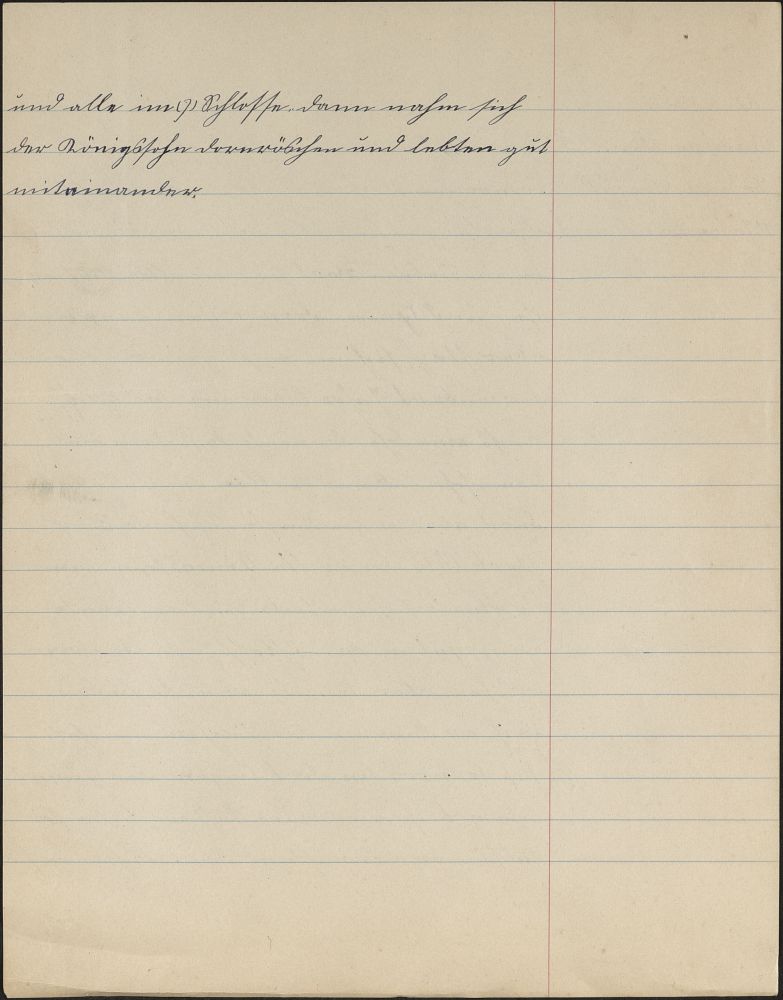 und alle im(?) Schlosse. dann nahm sich
der Königssohn dornröschen und lebten gut
miteinander.